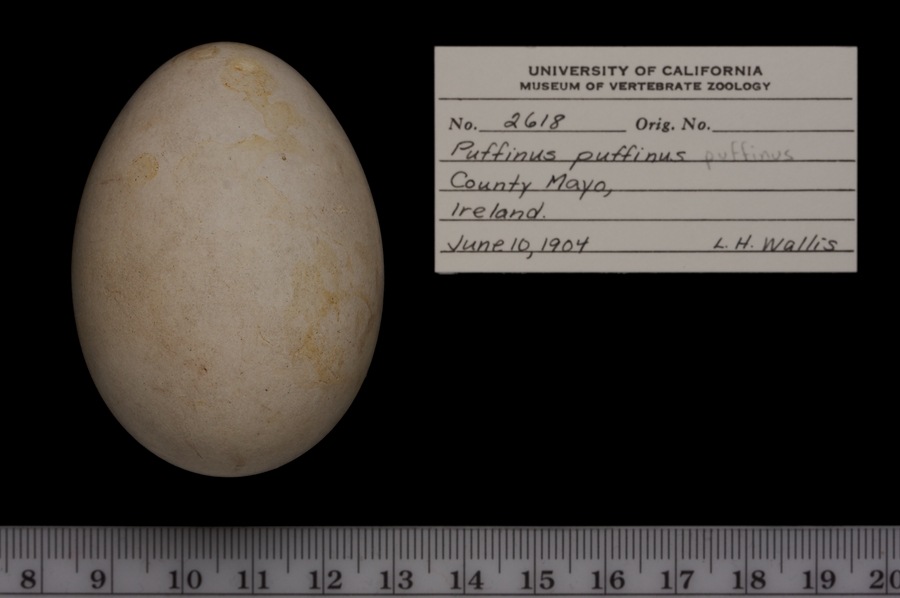 UNIVERSITY OF CALIFORNIA
MUSEUM OF VERTEBRATE ZOOLOGY
No. 2618 Orig. No.
Puffinus puffinus puffinus
County Mayo,
Ireland.
June 10, 1904 L. H. Wallis
8 9 10 11 12 13 14 15 16 17 18 19 20